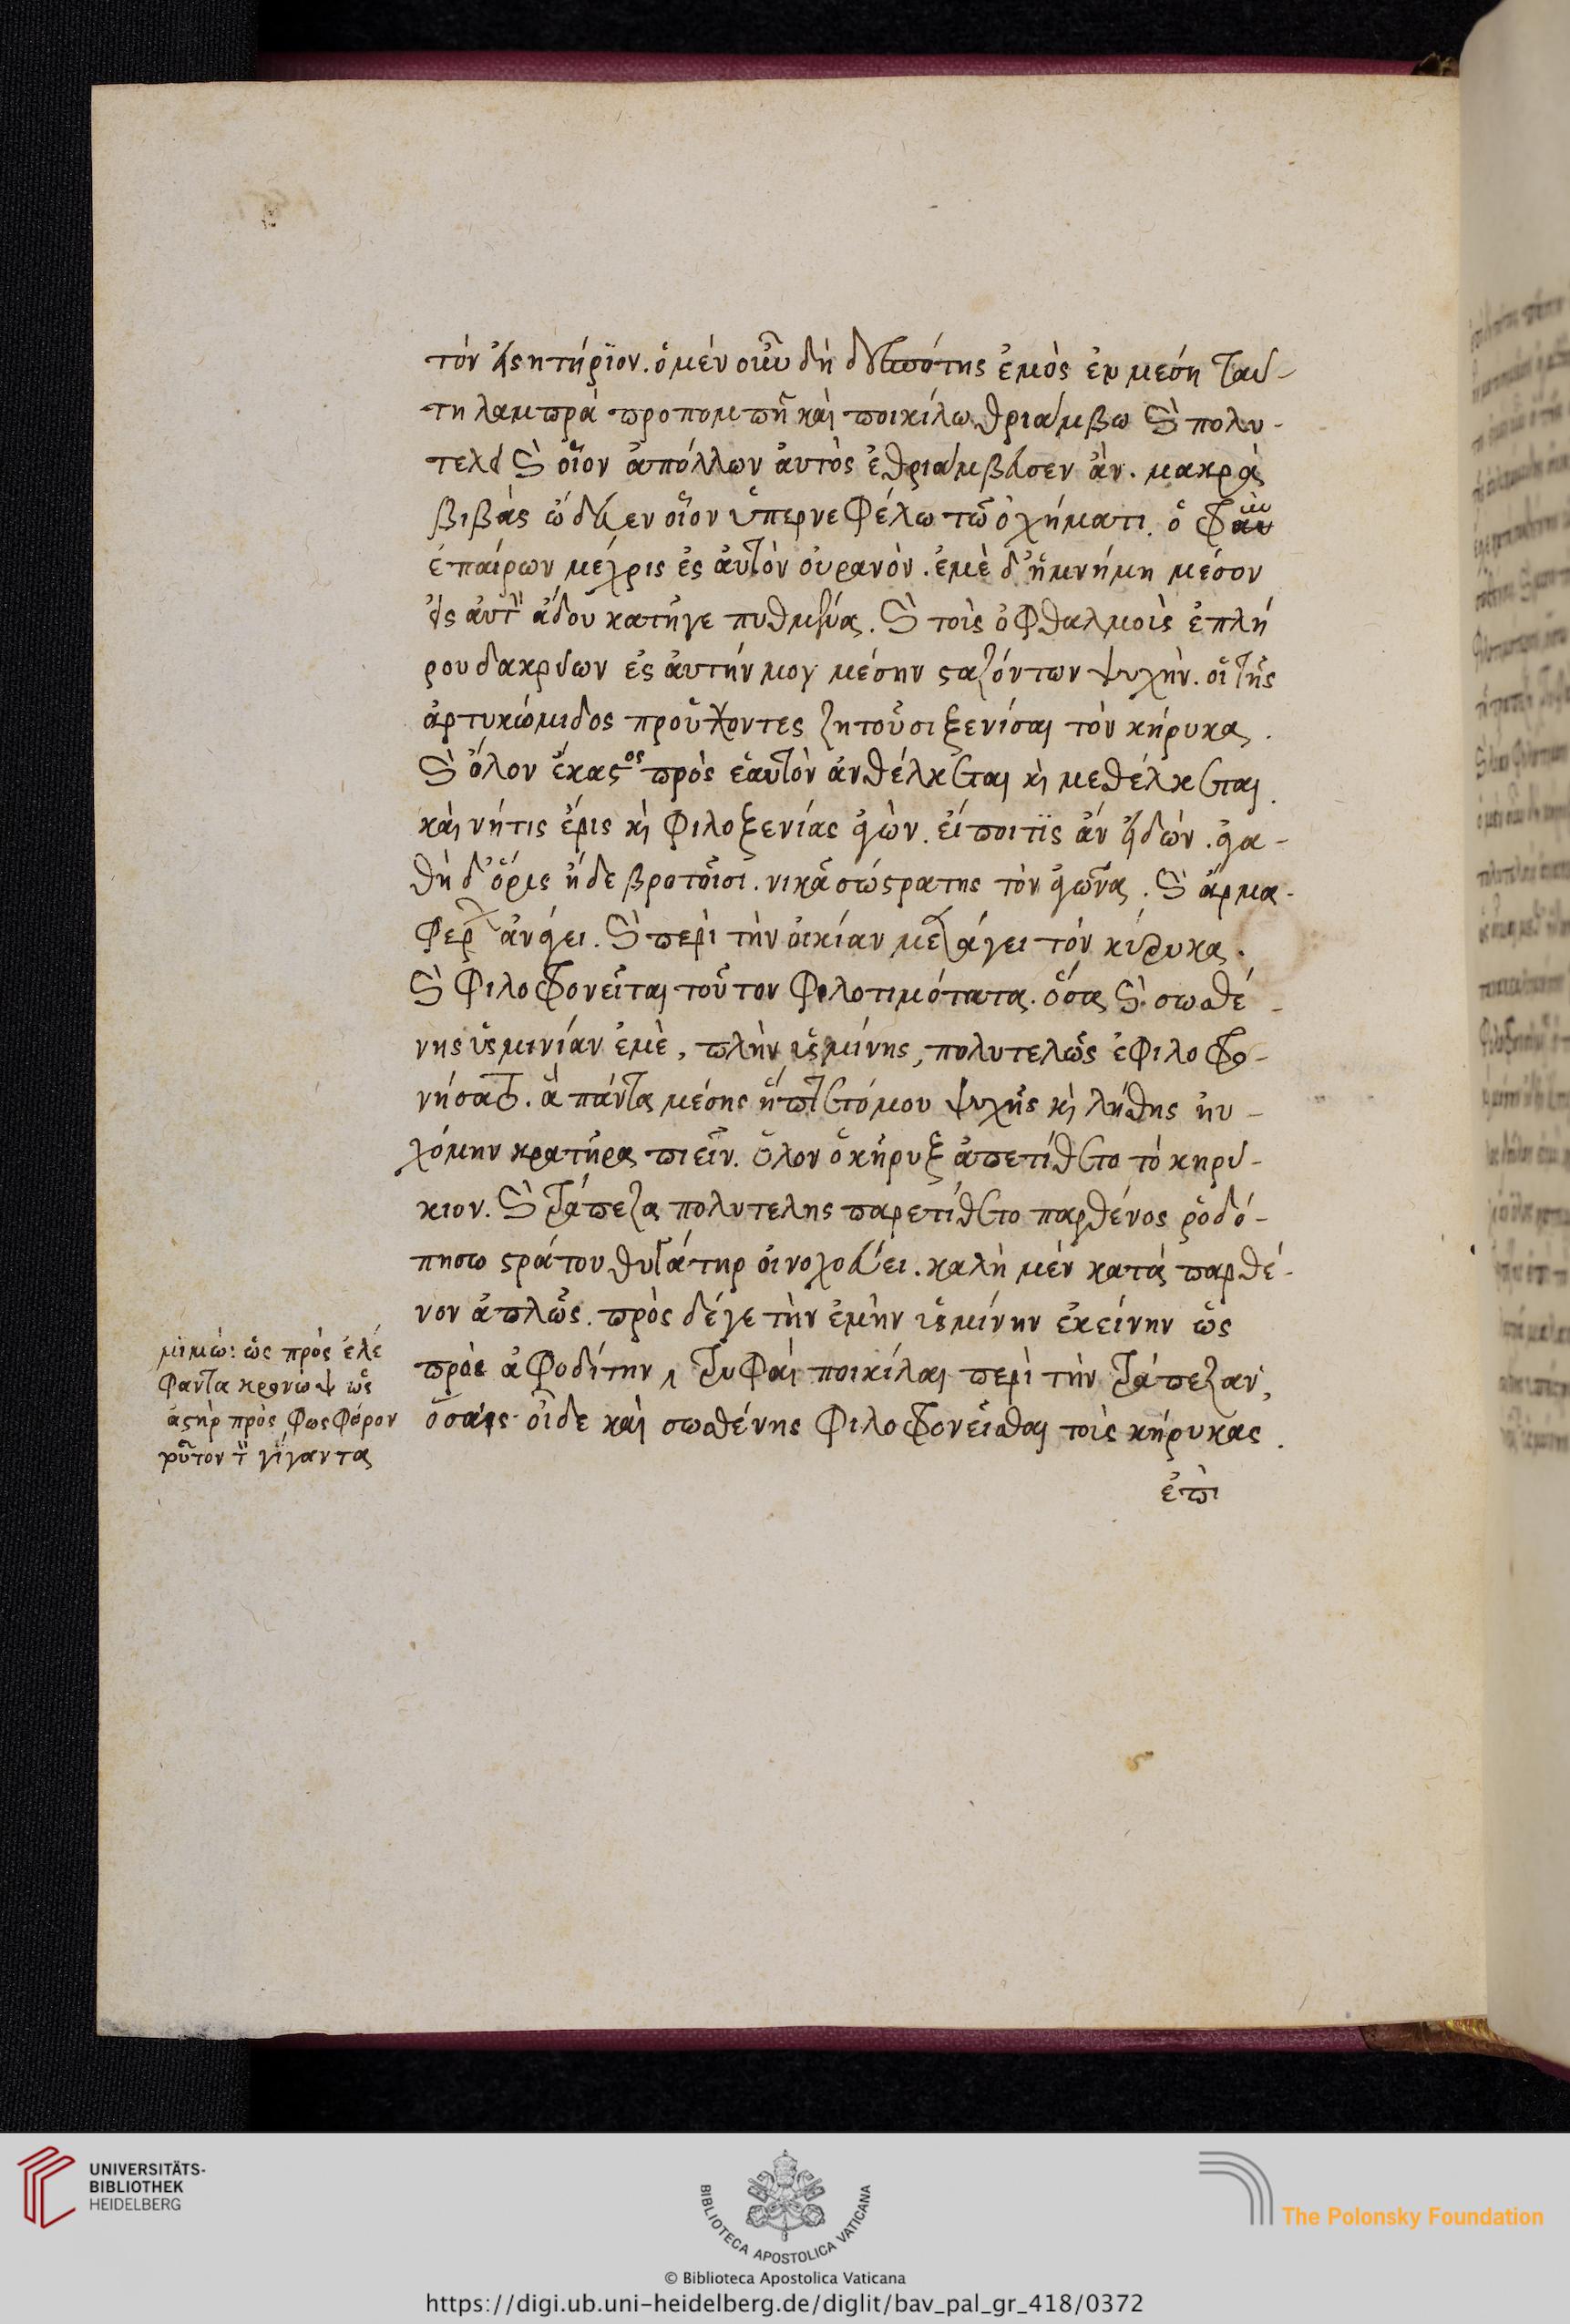 τὸν ἐξιτήριον. ὁ μὲν οὖν δὴ δεσπότης ἐμὸς ἐν μέση ταύ-
τη λαμπρὰ προπομπῆ καὶ ποικίλω θριάμβω καὶ πολυ-
τελεῖ καὶ οἷον ἀπόλλων ἀυτὸς ἐθριάμβευσεν ἂν. μακρὰ
βιβὰς ὥδευεν οἷον ὑπερνεφέλω τῶ ὀχήματι. ὀφρῦν
ἐπαίρων μέχρις ἐς ἀυτὸν οὐρανὸν. ἐμὲ δ' ἡ μνήμη μέσον
εἰς ἀυτοῦ ἅδου κατῆγε πυθμένας. καὶ τοῖς ὀφθαλμοῖς ἐπλή
ρου δακρύων ἐς ἀυτήν μου μέσην σταζόντων ψυχὴν. οἱ τῆς
ἀρτυκώμιδος προὔχοντες ζητοῦσι ξενίσαι τὸν κήρυκα.
καὶ ὅλον ἕκαστος πρὸς ἑαυτὸν ἀνθέλκεται καὶ μεθέλκεται
καὶ ἦν τις ἔρις καὶ φιλοξενίας ἀγὼν. εἴποι τις ἂν ἰδών. ἀγα-
θὴ δ' ἔρις ἥδε βροτοῖσι. νικᾶ σώστρατης τὸν ἀγῶνα. καὶ ἅρμα
φερ ἀνάγει. καὶ περὶ τὴν οἰκίαν μετάγει τὸν κήρυκα.
καὶ φιλοφρονεῖται τοῦτον φιλοτιμότατα. ὅσα καὶ σωσθέ-
νης ὑσμινίαν ἐμὲ, πλὴν ὑσμίνης, πολυτελῶς ἐφιλοφρο-
νήσατο. ἃ πάντα μέσης ἥπτετό μου ψυχῆς καὶ λήθης ηὐ-
χόμην κρατῆρα πιεῖν. ὅλον ὁ κῆρυξ ἀπετίθετο τὸ κηρύ-
κιον. καὶ τράπεζα πολυτελης παρετίθετο παρθένος ῥοδό-
πη σωστράτου θυγάτηρ οἰνοχοεύει. καλὴ μὲν κατὰ παρθέ-
νον ἁπλῶς. πρὸς δέ γε τὴν ἐμὴν ὑσμίνην ἐκείνην ὡς
πρὸς ἀφροδίτην, τρυφαὶ ποικίλαι περὶ τὴν τράπεζαν,
ὅσαις οἶδε καὶ σωσθένης φιλοφρονεῖσθαι τοὺς κήρυκας.
ἐπὶ
μιμώ: ὡς πρὸς ἐλέ
φαντα κώνωψ ὡς
ἀστὴρ πρὸς φωσφόρον
γίγαντας
UNIVERSITÄTS-
BIBLIOTHEK
HEIDELBERG
BIBLIOTECA APOSTOLICA VATICANA
© Biblioteca Apostolica Vaticana
The Polonsky Foundation
https://digi.ub.uni-heidelberg.de/diglit/bav_pal_gr_418/0372